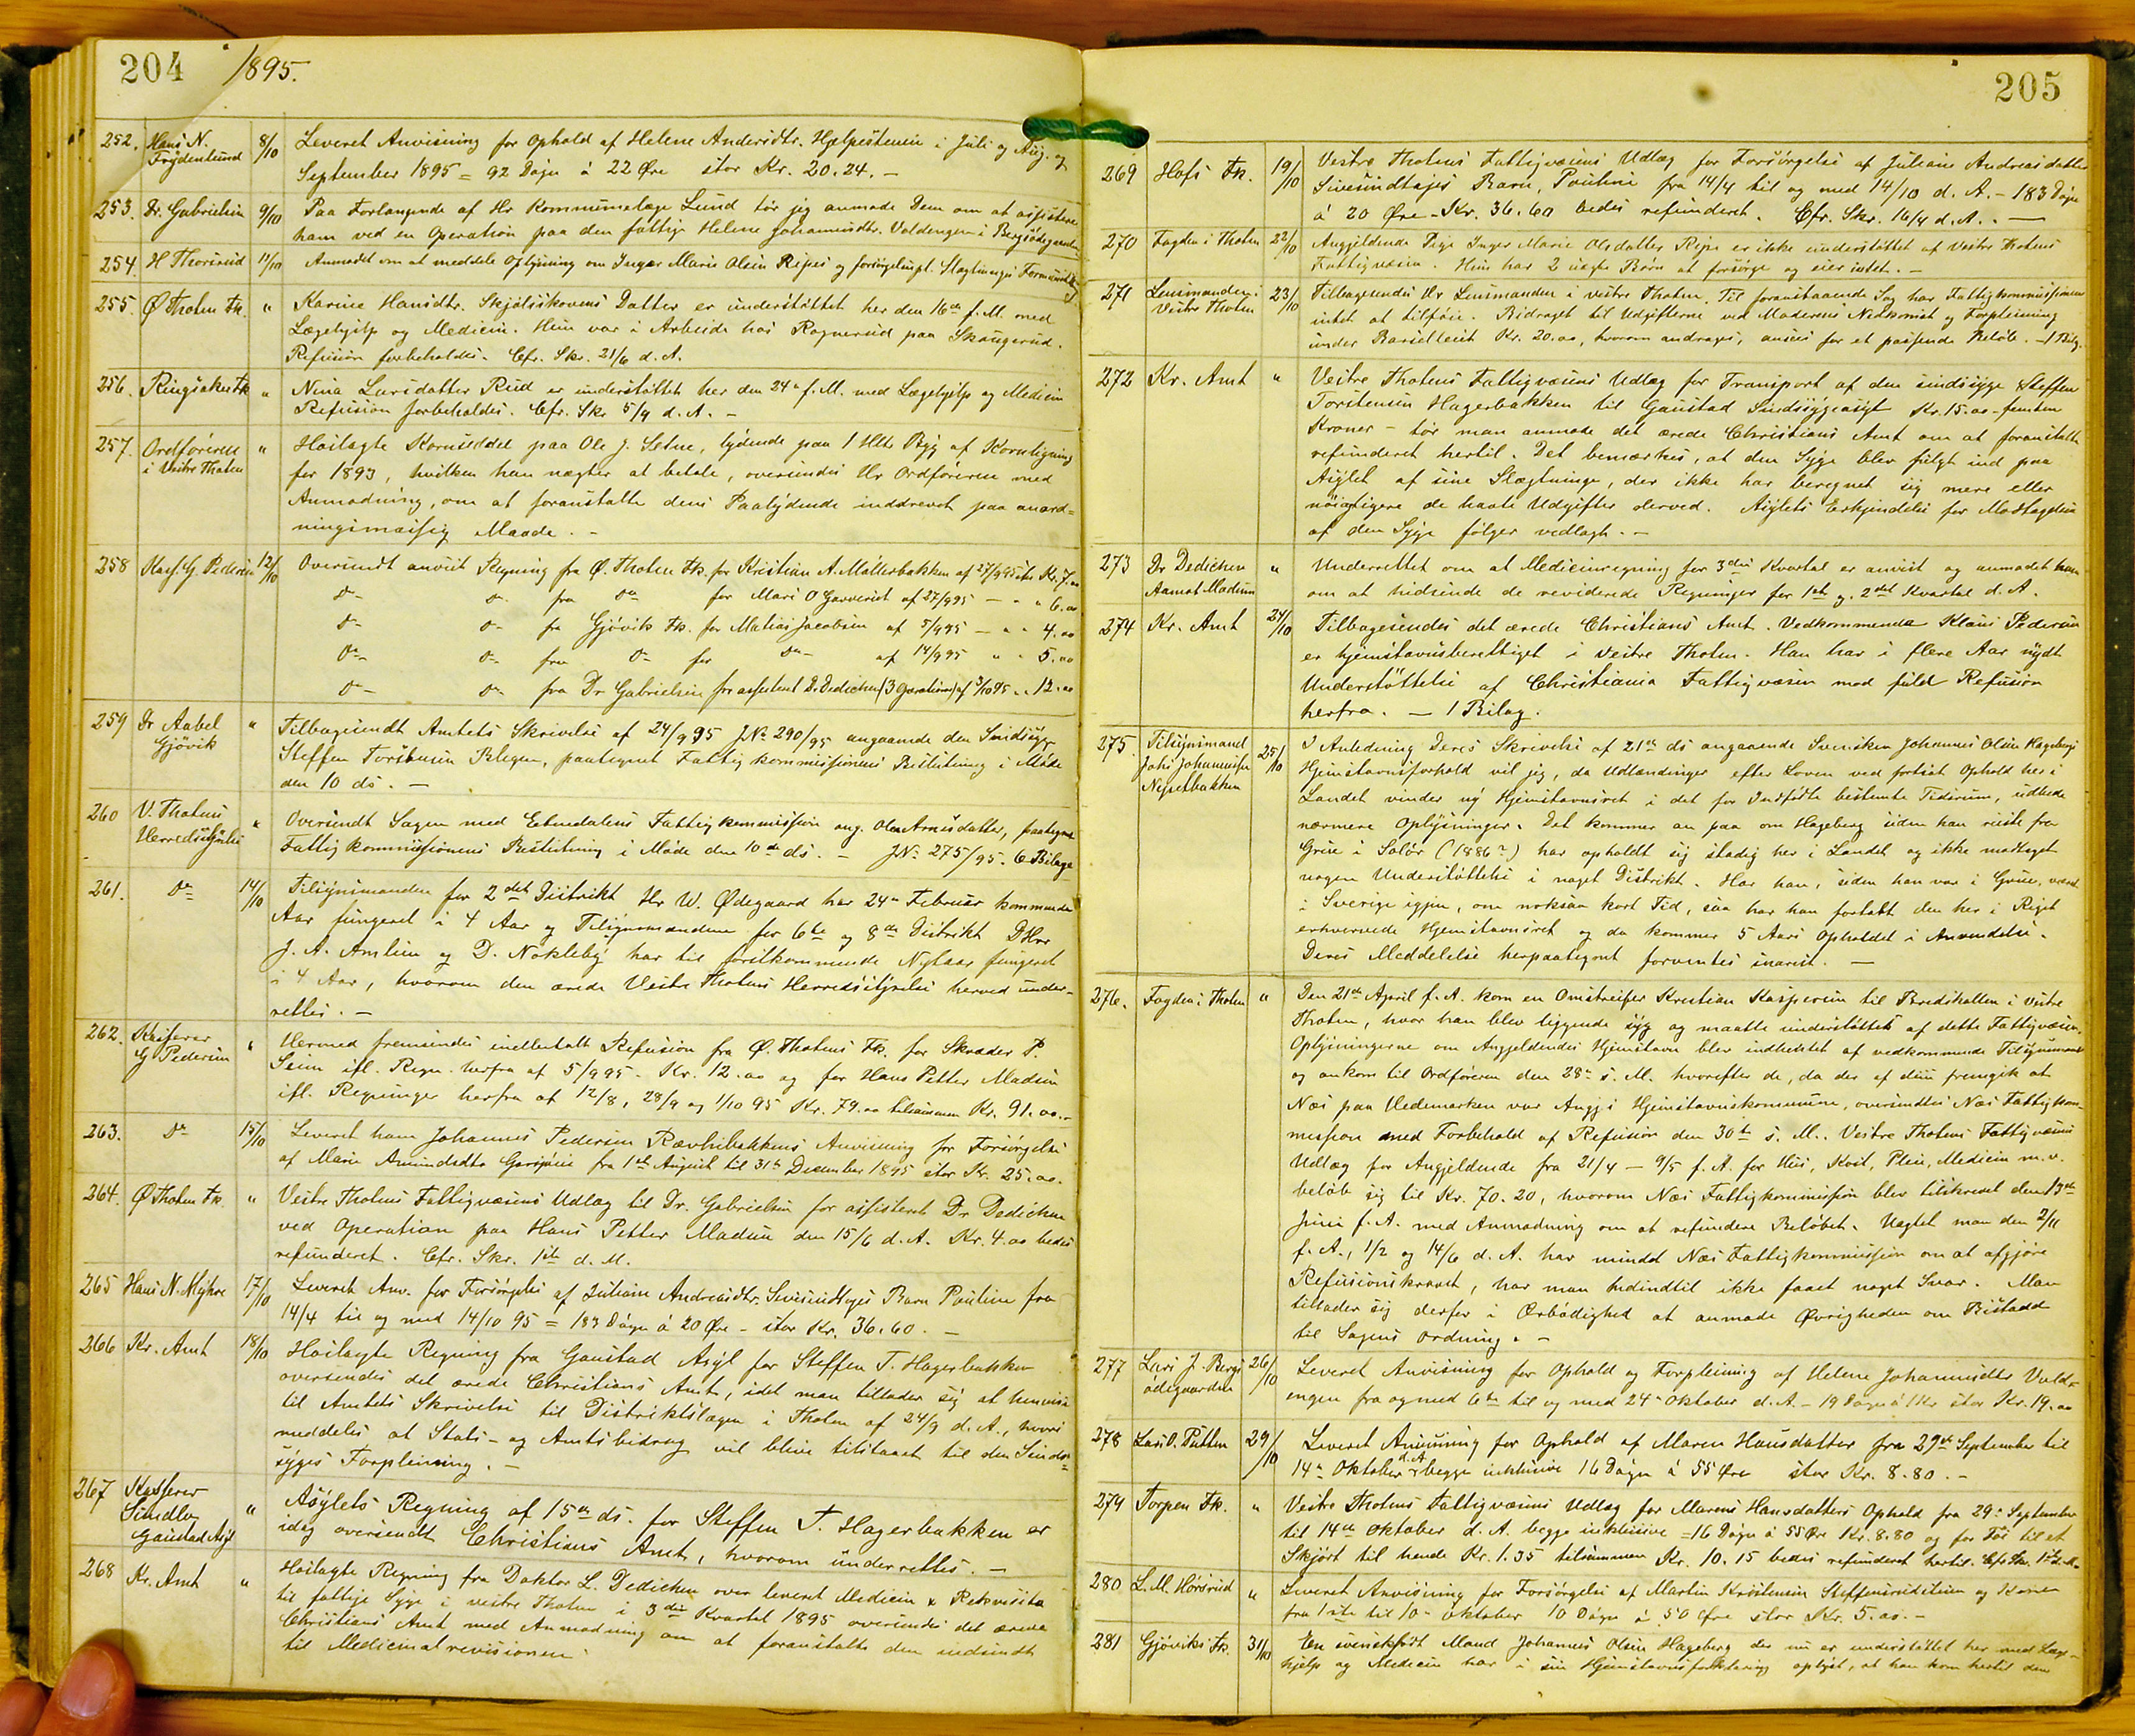 204 1895.
252. Hans N. Frydenlund 8/10 Leveret Anvisning for Ophold af Helene Andersdtr. Hjelpestuen i Juli og Aug. og
September 1895 = 92 Døgn á 22 Øre stor Kr. 20.24. –
253. Dr. Gabrielsen 9/10 Paa Forlangende af Hr Kommunelæge Lund tør jeg anmode Dem om at assistere
ham ved en Operation paa den fattige Helene Johannesdtr. Valdengen i Bergsødegaarden
254. H Thorsrud 11/10 Anmodet om at meddele Oplysning om Inger Marie Olsen Ripes og
255. Ø Thoten Fk. " Karine Hansdtr. Skjølsskovens Datter er understøttet her den 16de f. M. med
Lægehjelp og Medicin. Hun var i Arbeide hos Rognerud paa Skaugerud.
Refusion forbeholdes. Cfr. Skr. 21/6 d. A.
256. Ringsaker Fk " Nina Larsdatter Rud er understøttet her den 24de f. M. med Lægehjelp og Medicin
Refusion forbeholdes. Cfr. Skr 5/9 d. A. –
257. Ordføreren i Vestre Thoten " Hoslagte Kornseddel paa Ole J. Setne, lydende paa 1 Hltr Byg af Kornligning
for 1893, hvilken han nægter at betale, oversendes Hr Ordføreren med
Anmodning, om at foranstalte dens Paalydende inddrevet paa anord=
ningsmæssig Maade. –
258 Kass. G. Pedersen 12/10 Oversendt anvist Regning fra Ø. Thoten Fk. for Kristian A. Møllerbakken af 27/9 95 stor Kr. 7.00
Do Do fra Do for Mari O Garveriet af 27/9 95 – " " 6.00
Do Do fra Gjøvik Fk. for Matias Jacobsen af 5/9 95 – " " 4.00
Do Do fra Do for Do af 14/9 95 " " 5.00
Do Do fra Dr Gabrielsen for assisteret Dr Dedichen (3 Operationer) af 3/10 95 " " 12.00
259 Dr Aabel Gjøvik " Tilbagesendt Amtets Skrivelse af 24/9 95 JNo 290/95 angaaende den Sindssyge
Steffen Torstensen Blegen, paategnet Fattigkommissionens Beslutning i Møde
den 10 ds. –
260 V. Thotens Herredsstyrelse " Oversendt Sagen med Etnedalens Fattigkommission ang. Olea Arnesdatter, paategnet
Fattigkommissionens Beslutning i Møde den 10de ds. – JNo 275/95. 6 Bilage
261. Do 14/10 Tilsynsmanden for 2det Distrikt Hr W. Ødegaard har 24de Februar kommende
Aar fungeret i 4 Aar og Tilsynsmændene for 6te og 8de Distrikt DHrr
J. A. Amlien og D. Nøkleby har til førstkommende Nytaar fungeret
i 4 Aar, hvorom den ærede Vestre Thotens Herredsstyrelse herved under=
rettes. –
262. Kasserer G Pedersen " Hermed fremsendes indbetalt Refusion fra Ø. Thotens Fk. for Skræder P.
Seim ifl. Regn. herfra af 5/9 95 – Kr. 12.00 og for Hans Petter Madsen
ifl. Regninger herfra af 12/8, 28/9 og 1/10 95 Kr. 79.00 tilsammen Kr. 91.00. –
263. Do 15/10 Leveret ham Johannes Pedersen Rævhibakkens Anvisning for Forsørgelse
af Marie Amundsdtr fra 1ste August til 31te December 1895 stor Kr. 25.00.
264. Ø Thoten Fk. " Vestre Thotens Fattigvæsens Udlæg til Dr. Gabrielsen for assisteret Dr Dedichen
ved Operation paa Hans Petter Madsen den 15/6 d. A. Kr. 4.00 bedes
refunderet. Cfr. Skr. 1ste d. M.
265 Hans N. Myhre 17/10 Leveret Anv. for Forsørgelse af Juliane Andreasdtr. Sivesindtajes Barn Pauline fra
14/4 til og med 14/10 95 = 183 Døgn á 20 Øre – stor Kr. 36.60. –
266 Kr. Amt 18/10 Hoslagte Regning fra Gaustad Asyl for Steffen T. Hagerbakken
oversendes det ærede Christians Amt, idet man tillader sig at henvise
til Amtets Skrivelse til Distriktslægen i Thoten af 24/9 d. A., hvori
meddeles at Stats- og Amtsbidrag vil blive tilstaaet til den Sinds=
syges Forpleining. –
267 Kasserer Gaustad Asyl " Asylets Regning af 15de ds. for Steffen T. Hagerbakken er
idag oversendt Christians Amt, hvorom underrettes. –
268 Kr. Amt " Hoslagte Regning fra Doktor L. Dedichen over leveret Medicin & Rekvisita
til fattige Syge i vestre Thoten i 3die Kvartal 1895 oversendes det ærede
Christians Amt med Anmodning om at foranstalte den indsendt
til Medicinalrevisionen
205
269 Hofs Fk. 19/10 Vestre Thotens Fattigvæsens Udlæg for Forsørgelse af Juliane Andreasdatter
Sivesindtajes Barn, Pauline fra 14/4 til og med 14/10 d. A. – 183 Døgn
á 20 Øre – Kr. 36.60 bedes refunderet. Cfr. Skr. 16/4 d. A. –
270 Fogden i Thoten 22/10 Angjeldende Pige Inger Marie Olsdatter Ripe er ikke understøttet af Vestre Thotens
Fattigvæsen. Hun har 2 uægte Børn at forsørge og eier intet. –
271 Lensmanden i Vestre Thoten 23/10 Tilbagesendes Hr Lensmanden i vestre Thoten. Til foranstaaende Sag har Fattigkommissionen
intet at tilføie. Bidraget til Udgifterne ved Moderens Nedkomst og Forpleining
under Barselleiet Kr. 20.00, hvorom andrages, ansees for et passende Beløb. – 1 Bilag.
272 Kr. Amt " Vestre Thotens Fattigvæsens Udlæg for Transport af den sindssyge Steffen
Torstensen Hagerbakken til Gaustad Sindssygeasyl Kr. 15.00 – femten
Kroner – tør man anmode det ærede Christians Amt om at foranstalte
refunderet hertil. Det bemærkes, at den Syge blev fulgt ind paa
Asylet af sine Slægtninge, der ikke har beregnet sig mere eller
nøiagtigere de havte Udgifter derved. Asylets Erkjendelse for Modtagelsen
af den Syge følger vedlagt. –
273 Dr Dedichen Aamot Modum " Underrettet om at Medicinregning for 3die Kvartal er anvist og anmodet ham
om at hidsende de reviderede Regninger for 1ste og 2det Kvartal d. A.
274 Kr. Amt 24/10 Tilbagesendes det ærede Christians Amt. Vedkommende Klaus Pedersen
er hjemstavnsberettiget i vestre Thoten. Han har i flere Aar nydt
Understøttelse af Christiania Fattigvæsen mod fuld Refusion
herfra. – 1 Bilag.
275. Tilsynsmand Johs Johannesen Nysetbakken 25/10 I Anledning Deres Skrivelse af 21de ds angaaende Svensken Johannes Olsen Hagebergs
Hjemstavnsforhold vil jeg, da Udlændinger efter Loven ved fortsat Ophold her i
Landet vinder ny Hjemstavnsret i det for Indfødte bestemte Tidsrum, udbede
nærmere Oplysninger. Det kommer an paa om Hageberg siden han reiste fra
Grue i Solør (1886?) har opholdt sig stadig her i Landet og ikke modtaget
nogen Understøttelse i noget Distrikt. Har han, siden han var i Grue, været
i Sverige igjen, om noksaa kort Tid, saa har han fortabt den her i Riget
erhvervede Hjemstavnsret og da kommer 5 Aars Opholdet i Anvendelse.
Deres Meddelelse herpaategnet forventes snarest. –
276. Fogden i Thoten " Den 21de April f. A. kom en Omstreifer Kristian Kaspersen til Bredshallen i vestre
Thoten, hvor han blev liggende syg og maatte understøttes af dette Fattigvæsen.
Oplysningerne om Angjeldendes Hjemstavn blev indhentet af vedkommende Tilsynsmand
og ankom til Ordføreren den 28de s. M. hvorefter de, da der af disse fremgik at
Næs paa Hedemarken var Angj.s Hjemstavnskommune, oversendtes Næs Fattigkom-
mission med Forbehold af Refusion den 30te s. M. Vestre Thotens Fattigvæsens
Udlæg for Angjeldende fra 21/4 – 9/5 f. A. for Hus, Kost, Pleie, Medicin m. v.
beløb sig til Kr. 70.20, hvorom Næs Fattigkommission blev tilskrevet den 13de
Juni f. A. med Anmodning om at refundere Beløbet. Uagtet man den 2/11
f. A., 1/2 og 14/6 d. A. har mindet Næs Fattigkommission om at afgjøre
Refusionskravet, har man hidindtil ikke faaet noget Svar. Man
tillader sig derfor i Ærbødighed at anmode Øvrigheden om Bistand
til Sagens Ordning. –
277 Lars J. Bergsødegaarden 26/10 Leveret Anvisning for Ophold og Forpleining af Helene Johannesdtr Vald=
engen fra og med 6te til og med 24de Oktober d. A. – 19 Døgn á 1 Kr stor Kr. 19.00
278 Lars O. Putten 29/10 Leveret Anvisning for Ophold af Maren Hansdatter fra 29de September til
14de Oktober d. A. begge inklusive 16 Døgn á 55 Øre stor Kr. 8.80. –
279 Torpen Fk. " Vestre Thotens Fattigvæsens Udlæg for Marens Hansdatters Ophold fra 29de September
til 14de Oktober d. A. begge inklusive = 16 Døgn á 55 Øre Kr. 8.80 og for Tøi til et
Skjørt til hende Kr. 1.35 tilsammen Kr. 10.15 bedes refunderet hertil. Cfr. Skr. 1ste d. M.
280 L. M. Hørsrud " Leveret Anvisning for Forsørgelse af Martin Kristensen Steffensrudeien og Kone
fra 1ste til 10de Oktober 10 Døgn á 50 Øre stor Kr. 5.00. –
281 Gjøviks Fk. 31/10 En svenskfødt Mand Johannes Olsen Hageberg der nu er understøttet her med Læge-
hjelp og Medicin har i sin Hjemstavnsforklaring oplyst, at han kom hertil den